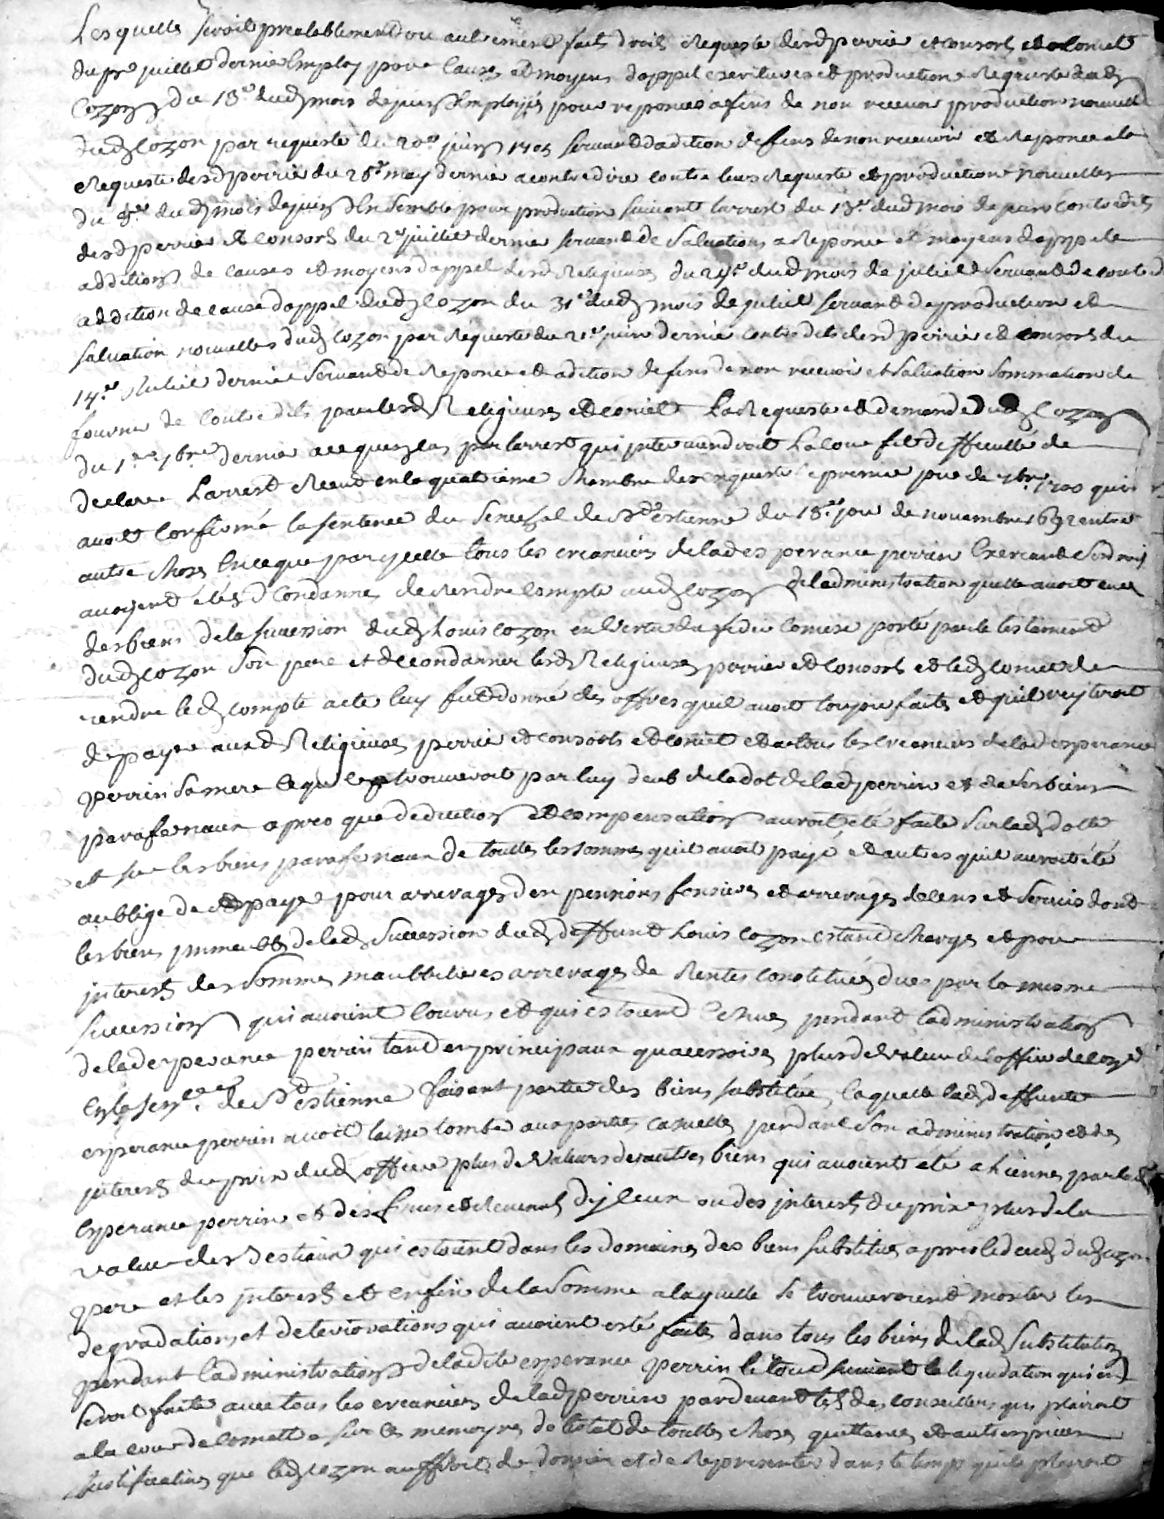 Lesquelles seroit prealablement ou autrement fait droit Requeste desd perrin et consors et coniel
du pr juillet dernier Employ pour Causes et moyens dappel escritures et production Requeste dud
Cozon du 13e dud mois de juin Employés pour reponces a fins de non recevoir production nouvelle
dud Cozon par requeste du 20e juin 1705 servant dadition de fins de non recevoir et Reponce a la
Requeste desd perrin du 28e may dernier a contredire contre leurs Requeste et production nouvelles
du dud mois de juin Ensemble pour production suivant larrest du 13e dud mois de juin contredits
desd perrin et Consors du 2e juillet dernier servant de Salvations a Reponce et moyens dappel
additions de causes et moyens dappel desd Religieuses du 24e dud mois de juliet Servant de contred
addition de cause dappel dud Cozon du 31e dud mois de juliet servant de production et
salvation nouvelles dud Cozon par Requeste du 21e juin dernier contredits desd perrin et consors du
14e Juliet dernier Servant de Reponce et adition de fins de non recevoir et salvation Sommation de
fournir de Contredits par lesd Religieuses et coniel La Requeste et demande dud Cozon
du 1er 7bre dernier a ce que par larrest qui interviendroit La Cour fit difficulté de
declarer Larrest Rendu en la quatrieme Chambre des enquestes le premier jour de 7bre 1700 qui
avoit Confirmé la sentence du Senechal de St Estienne du 18e jour de novembre 1692 entre
autre choses En ce que par icelle tous les creanciers de lad esperance perrin Exercant Ses droits
avoyent étés Condannés de Rendre Compte aud Cozon de ladministration quelle avoit eue
des biens de la succession dud Louis Cozon en vertu du fidei Comise porté par le testament
dud Cozon Son pere et de condanner lesd Religieuses perrin et Consors et led Coniel de
rendre led compte acte luy fut donné des offres quil avoit toujours faites et quil reyteroit
de payer auxd Religieuses perrin et consorts et coniel et a tous les Creanciers de lad esperance
perrin Sa mere Ce qui Se trouveroit par luy deub de la dot de lad perrin et de Ses biens
parafernaux apres que deduction et compensation auroit été faite Sur lad dotte
et sur les biens parafernaux de touttes les sommes quil avoit payé et autres quil auroit été
aubligé de payer pour arrerages des pensions fonsieres et arrerages de Cens et Servis dont
les biens immeubles de lad Succession dud deffunt Louis Cozon estoint chargés et pour
interests des Sommes maubiliaires arrerages de Rentes Constituées dues par la mesme
Succession qui avoient Courus et qui estoient Echues pendant ladministration
de lad esperance perrin tant en principaux quacessoires plus de la valeur de loffice de
En la Senechaussée de St estienne faisant partie des biens substitués laquelle lad deffunte
esperance perrin avoit laissé tomber aux parties casuelles pendant Son administration et des
interests du prix dud office plus de la valeurs des autres biens qui avoient eté alienués par lad
Esperance perrin et des fruis et Revenus diceux ou des interests du prix plus de la
valeur des Bestiaux qui estoient dans les domaines des biens substitués apres le deces dud Cozon
pere et les interests et enfin de la Somme a laquelle Se trouveroient monter les
degradations et deteriorations qui avoient esté faites dans tous les biens de lad Substitution
pendant ladministration de ladite esperance perrin le tout suivant la liquidation qui en
seroit faite avec tous les creanciers de lad perrin pardevant tel des conseillers quil plairoit
a la cour de Comettre Sur les memoyres de letat de touttes choses quittances et autres pieces
Justificatives que led Cozon auffroit de donner et de Representer dans le temps quil plairoit